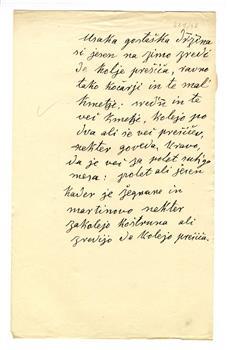 Usaka gostaška družina
si jesen na zimo zredi
de kolje prešiča, ravno
tako kočarji in te mal
kmetje: srednи in te
veči kmetje, koljejo po
dva ali še več prešičev,
nekter goveda, kravo,
da je več za polet suhiga
mesa: polet ali jesen
kader je žegnane in
martinovo nekter
zakolejo koštruna ali
zredijo da kolejo prešiča.